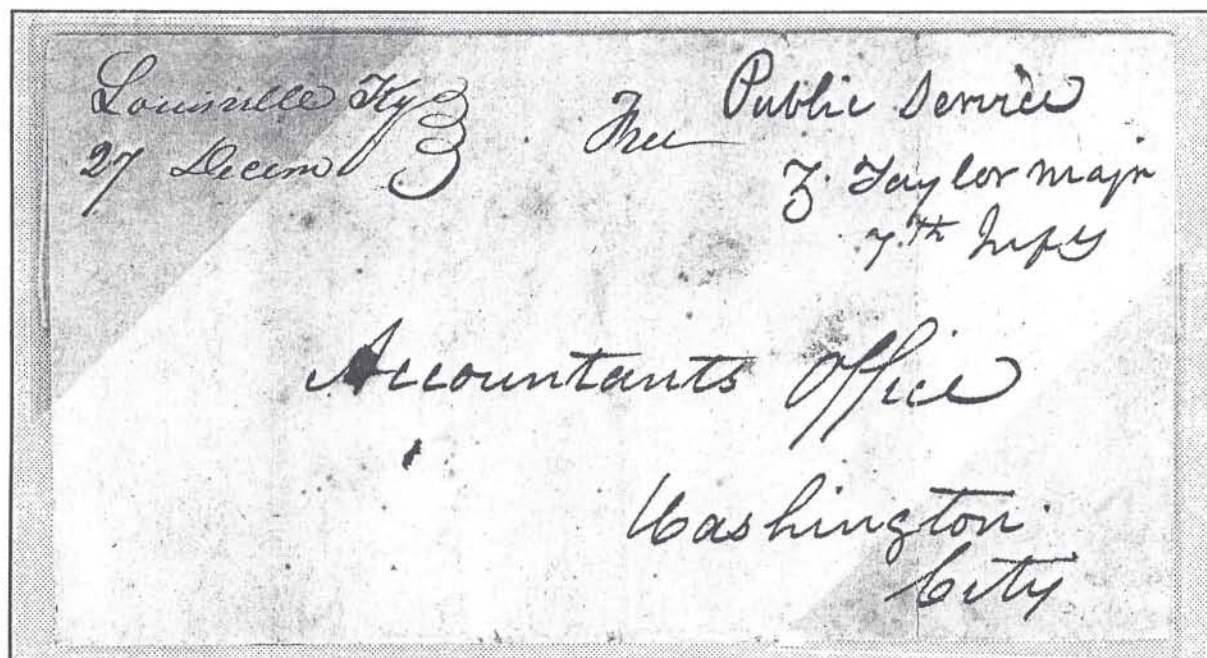 Louisville Ky
27 Decem
Free
Public Service
Z. Taylor Majr
7.th Infy
Accountants Office
Washington
City